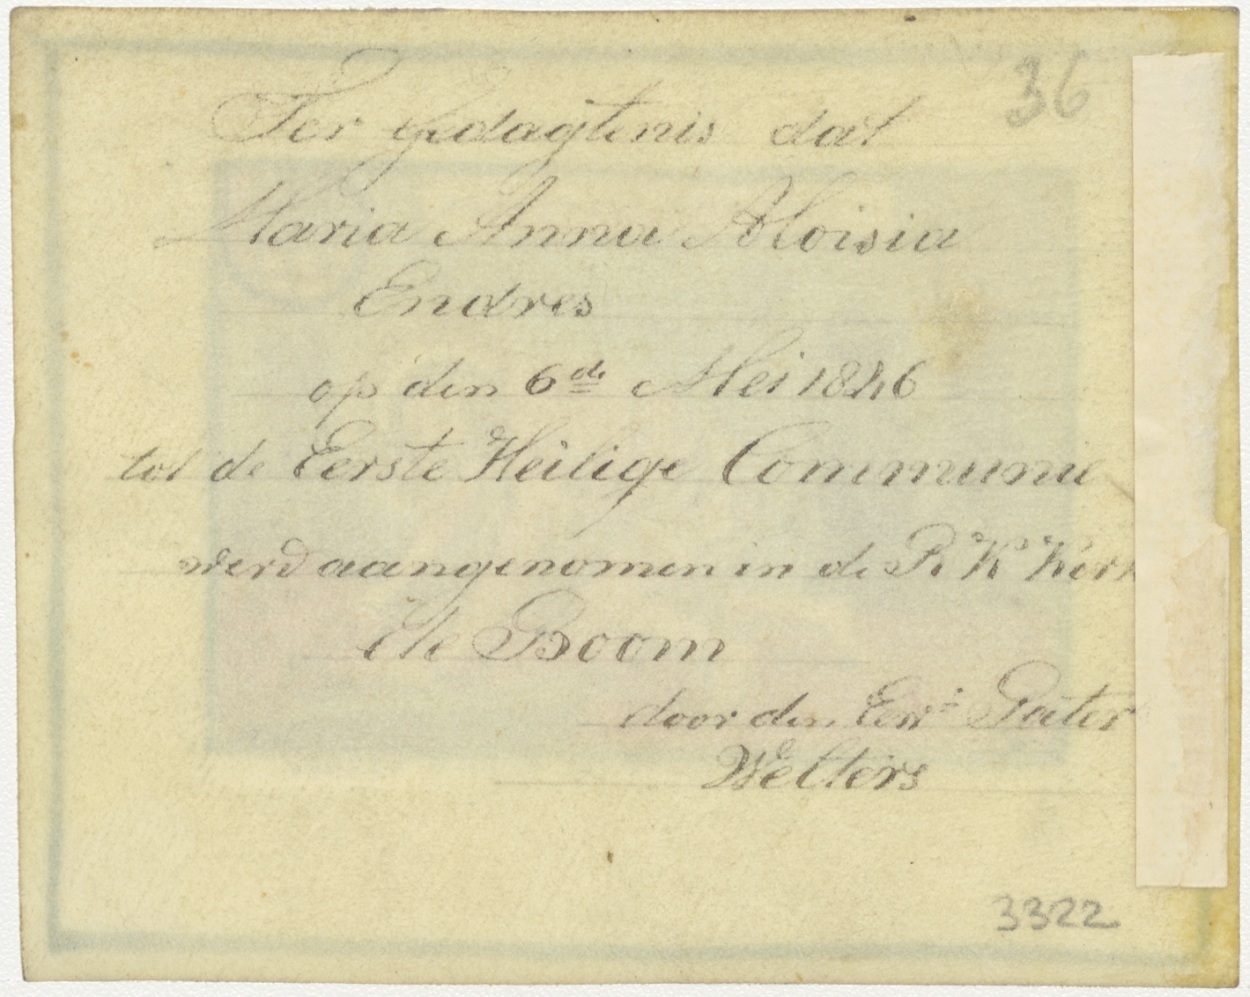 36
Ter gedagtenis dat
Maria Anna Aloisia
Endres
op den 6de Mei 1846
tot de Eerste Heilige Communie
werd aangenomen in de R K Kerk
de Boom
door den Eerw: Pater
Welters
3322